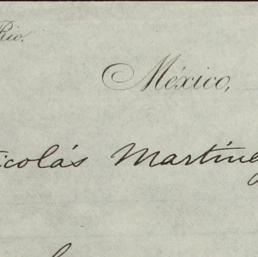 Rio.
México,
icolás Martínez